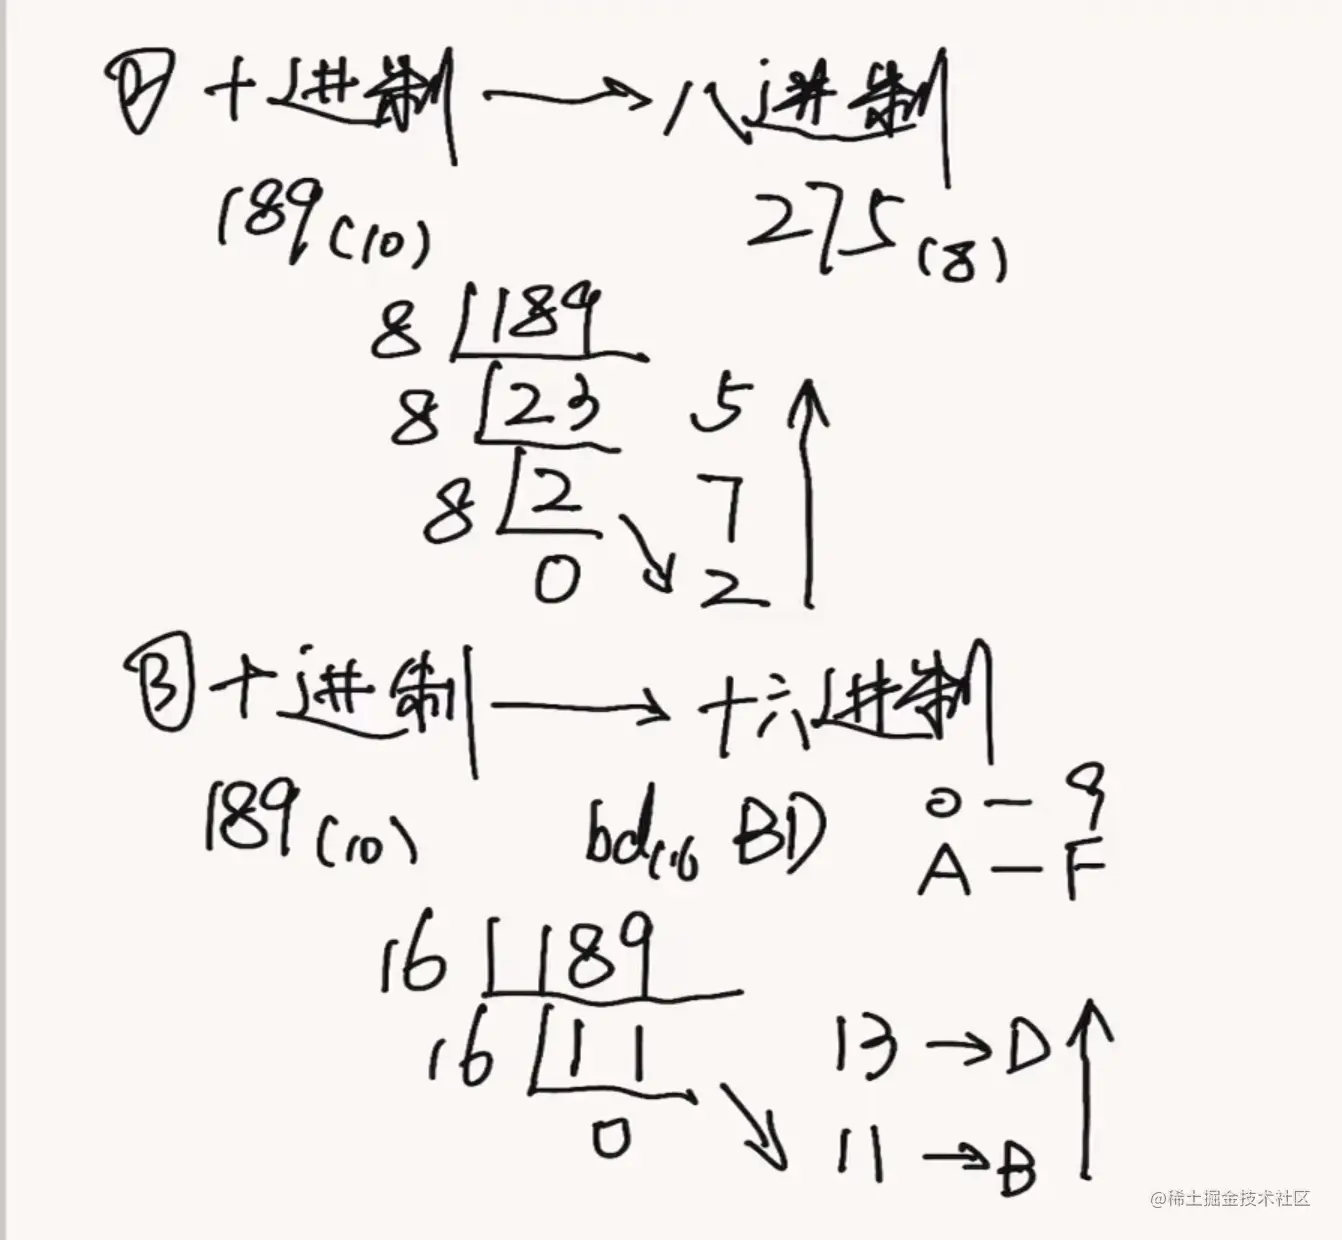 ② 十进制 → 八进制
189(10) 275(8)
8 189
8 23 5
8 2 7
0 2
③ 十进制 → 十六进制
189(10) bd(16 BD 0 — 9
A — F
16 189
16 11 13 → D
0 11 → B
@稀土掘金技术社区